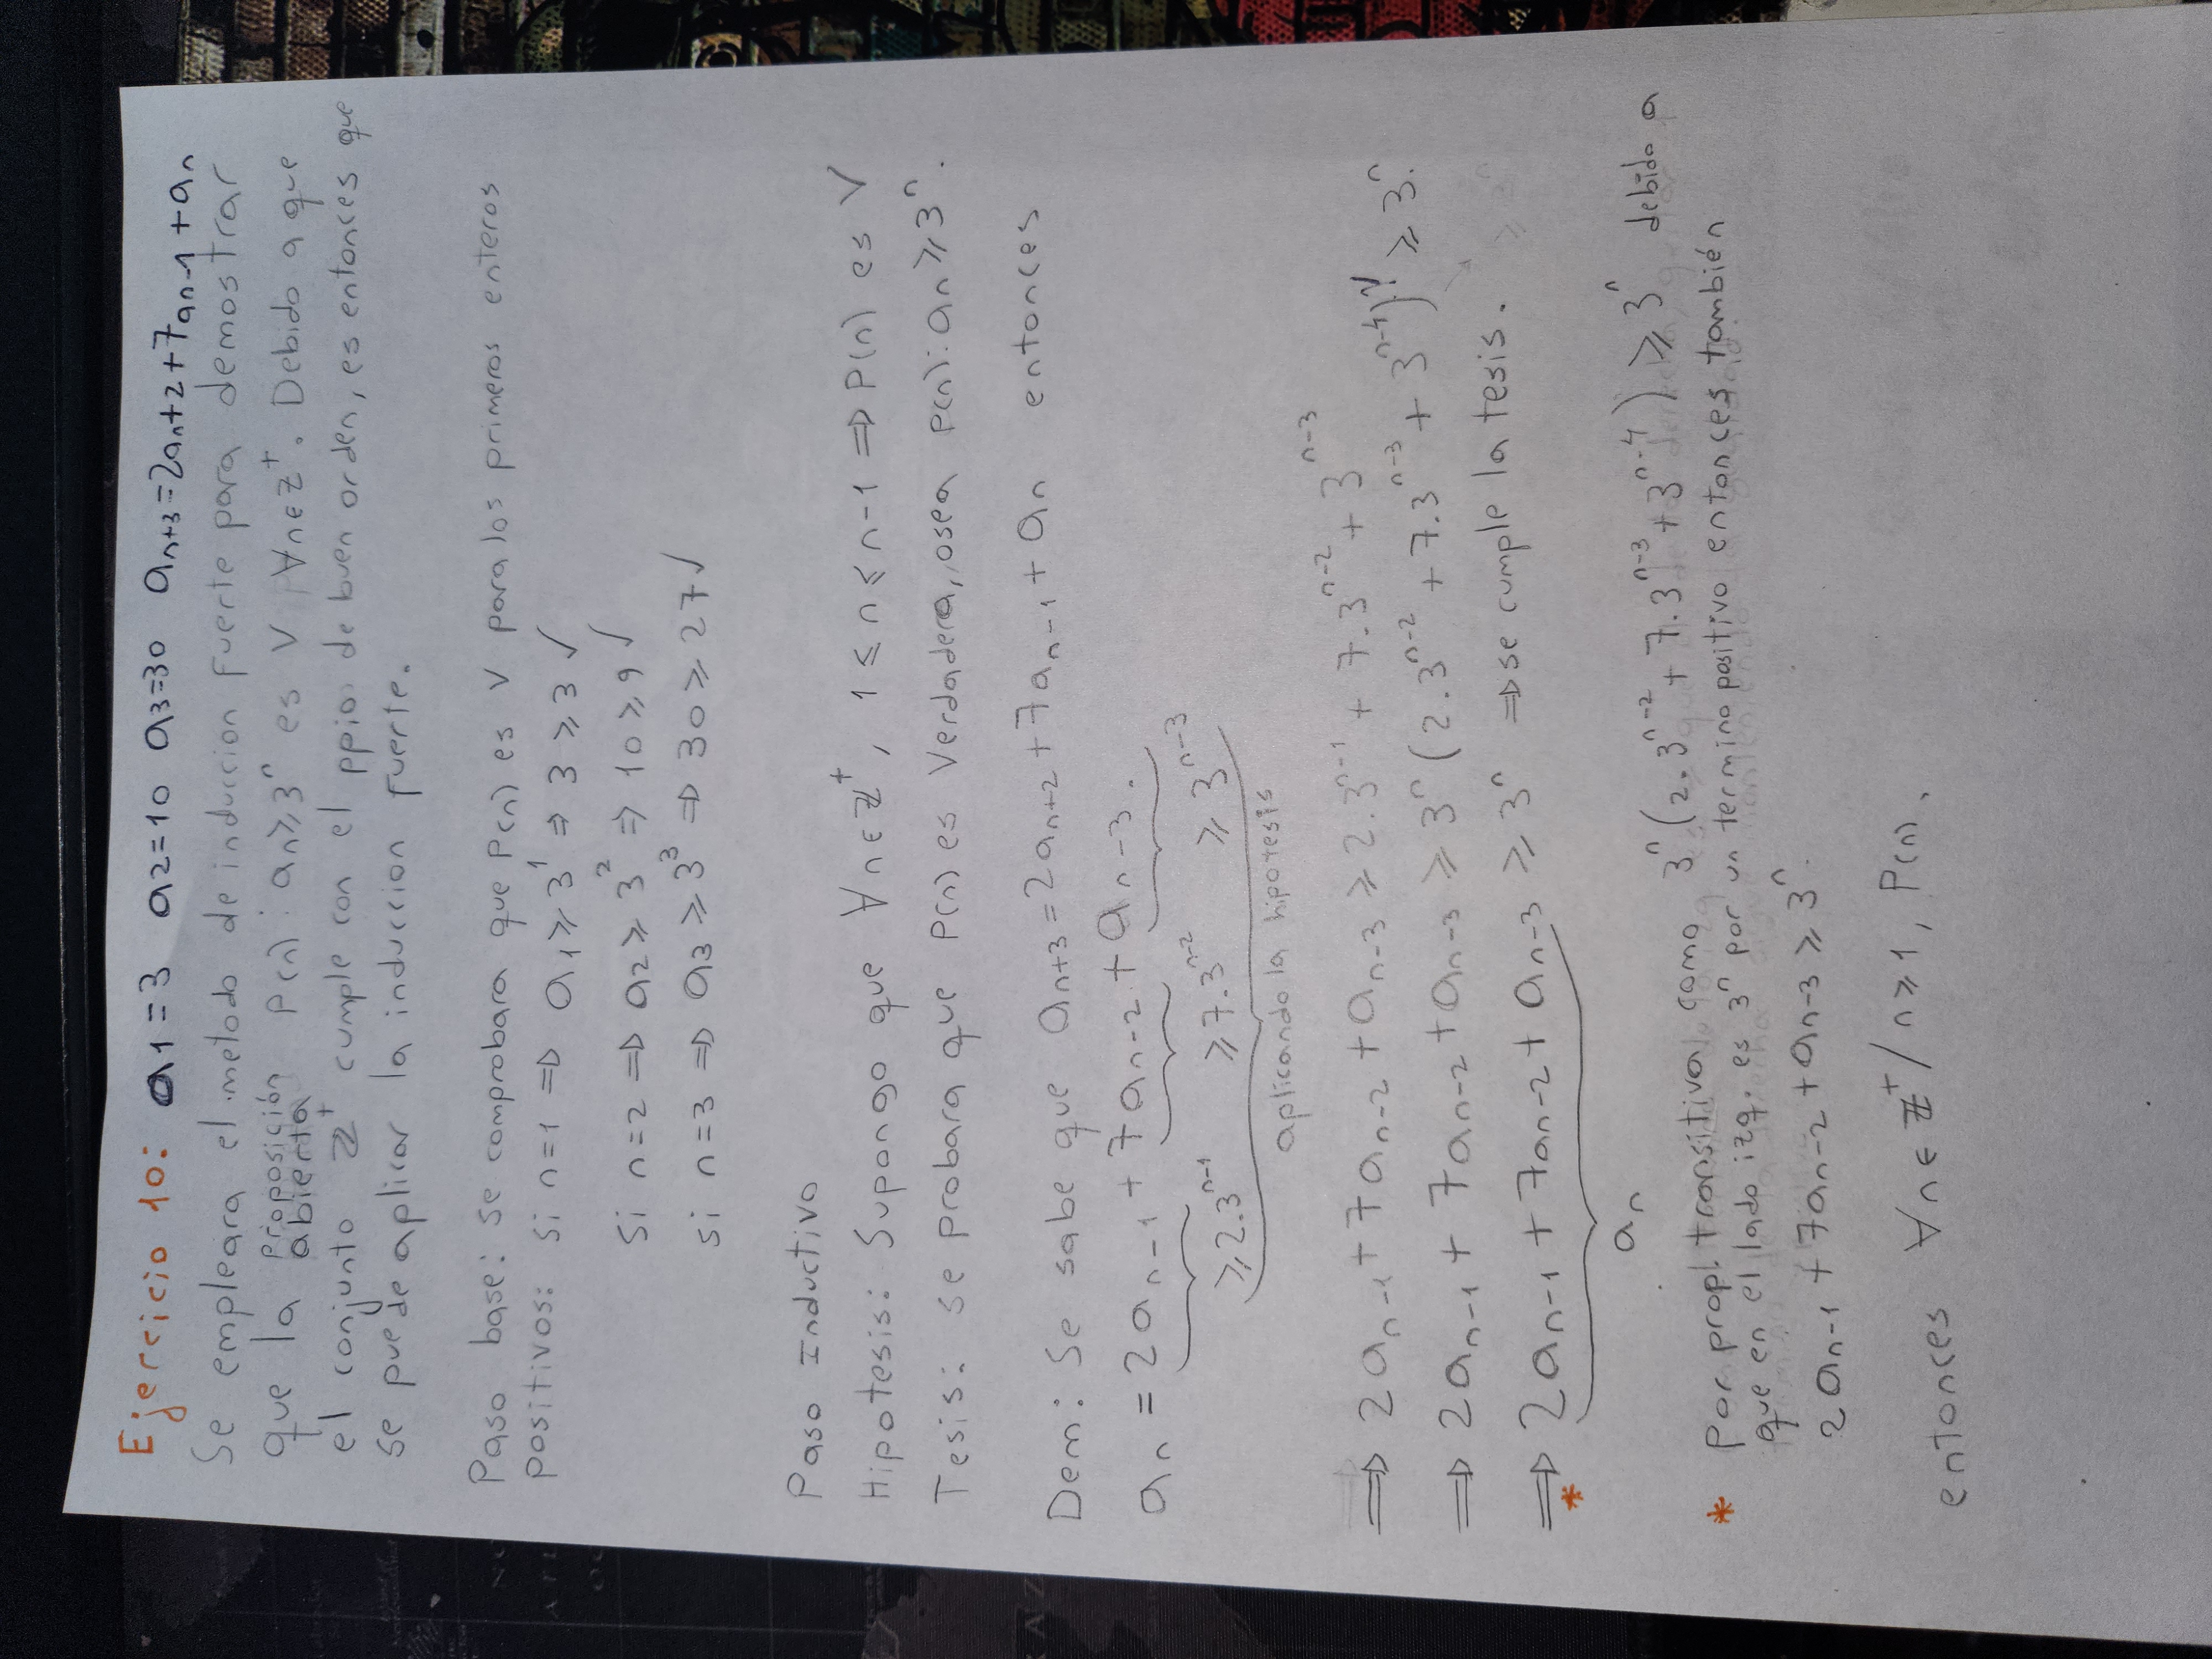 Ejercicio 10: a1=3 a2=10 a3=30 an+3=2an+2+7an-1+an
Se empleara el metodo de induccion fuerte para demostrar
que la proposición abierta p(n): an≥3^n es V ∀n∈Z^+. Debido a que
el conjunto Z^+ cumple con el ppio de buen orden, es entonces que
se puede aplicar la induccion fuerte.
Paso base: se comprobara que P(n) es V para los primeros enteros
positivos: si n=1 ⇒ a1≥3^1 ⇒ 3≥3 ✓
si n=2 ⇒ a2≥3^2 ⇒ 10≥9 ✓
si n=3 ⇒ a3≥3^3 ⇒ 30≥27 ✓
Paso Inductivo
Hipotesis: Supongo que ∀n∈Z^+, 1≤n≤n-1 ⇒ P(n) es V
Tesis: se probara que P(n) es Verdadera, osea P(n): an≥3^n.
Dem: Se sabe que an+3=2an+2+7an-1+an entonces
an=2an-1+7an-2+an-3.
≥2.3^n-1 ≥7.3^n-2 ≥3^n-3
aplicando la hipotesis
⇒ 2an-1+7an-2+an-3≥2.3^n-1+7.3^n-2+3^n-3
⇒ 2an-1+7an-2+an-3≥3^n(2.3^n-2+7.3^n-3+3^n-4)≥3^n.
⇒ 2an-1+7an-2+an-3≥3^n ⇒ se cumple la tesis.
*
an
* Por propl transitiva como 3^n(2.3^n-2+7.3^n-3+3^n-4)≥3^n debido a
que en el lado izq. es 3^n por un termino positivo entonces también
2an-1+7an-2+an-3≥3^n.
entonces ∀n∈Z^+/n≥1, P(n).